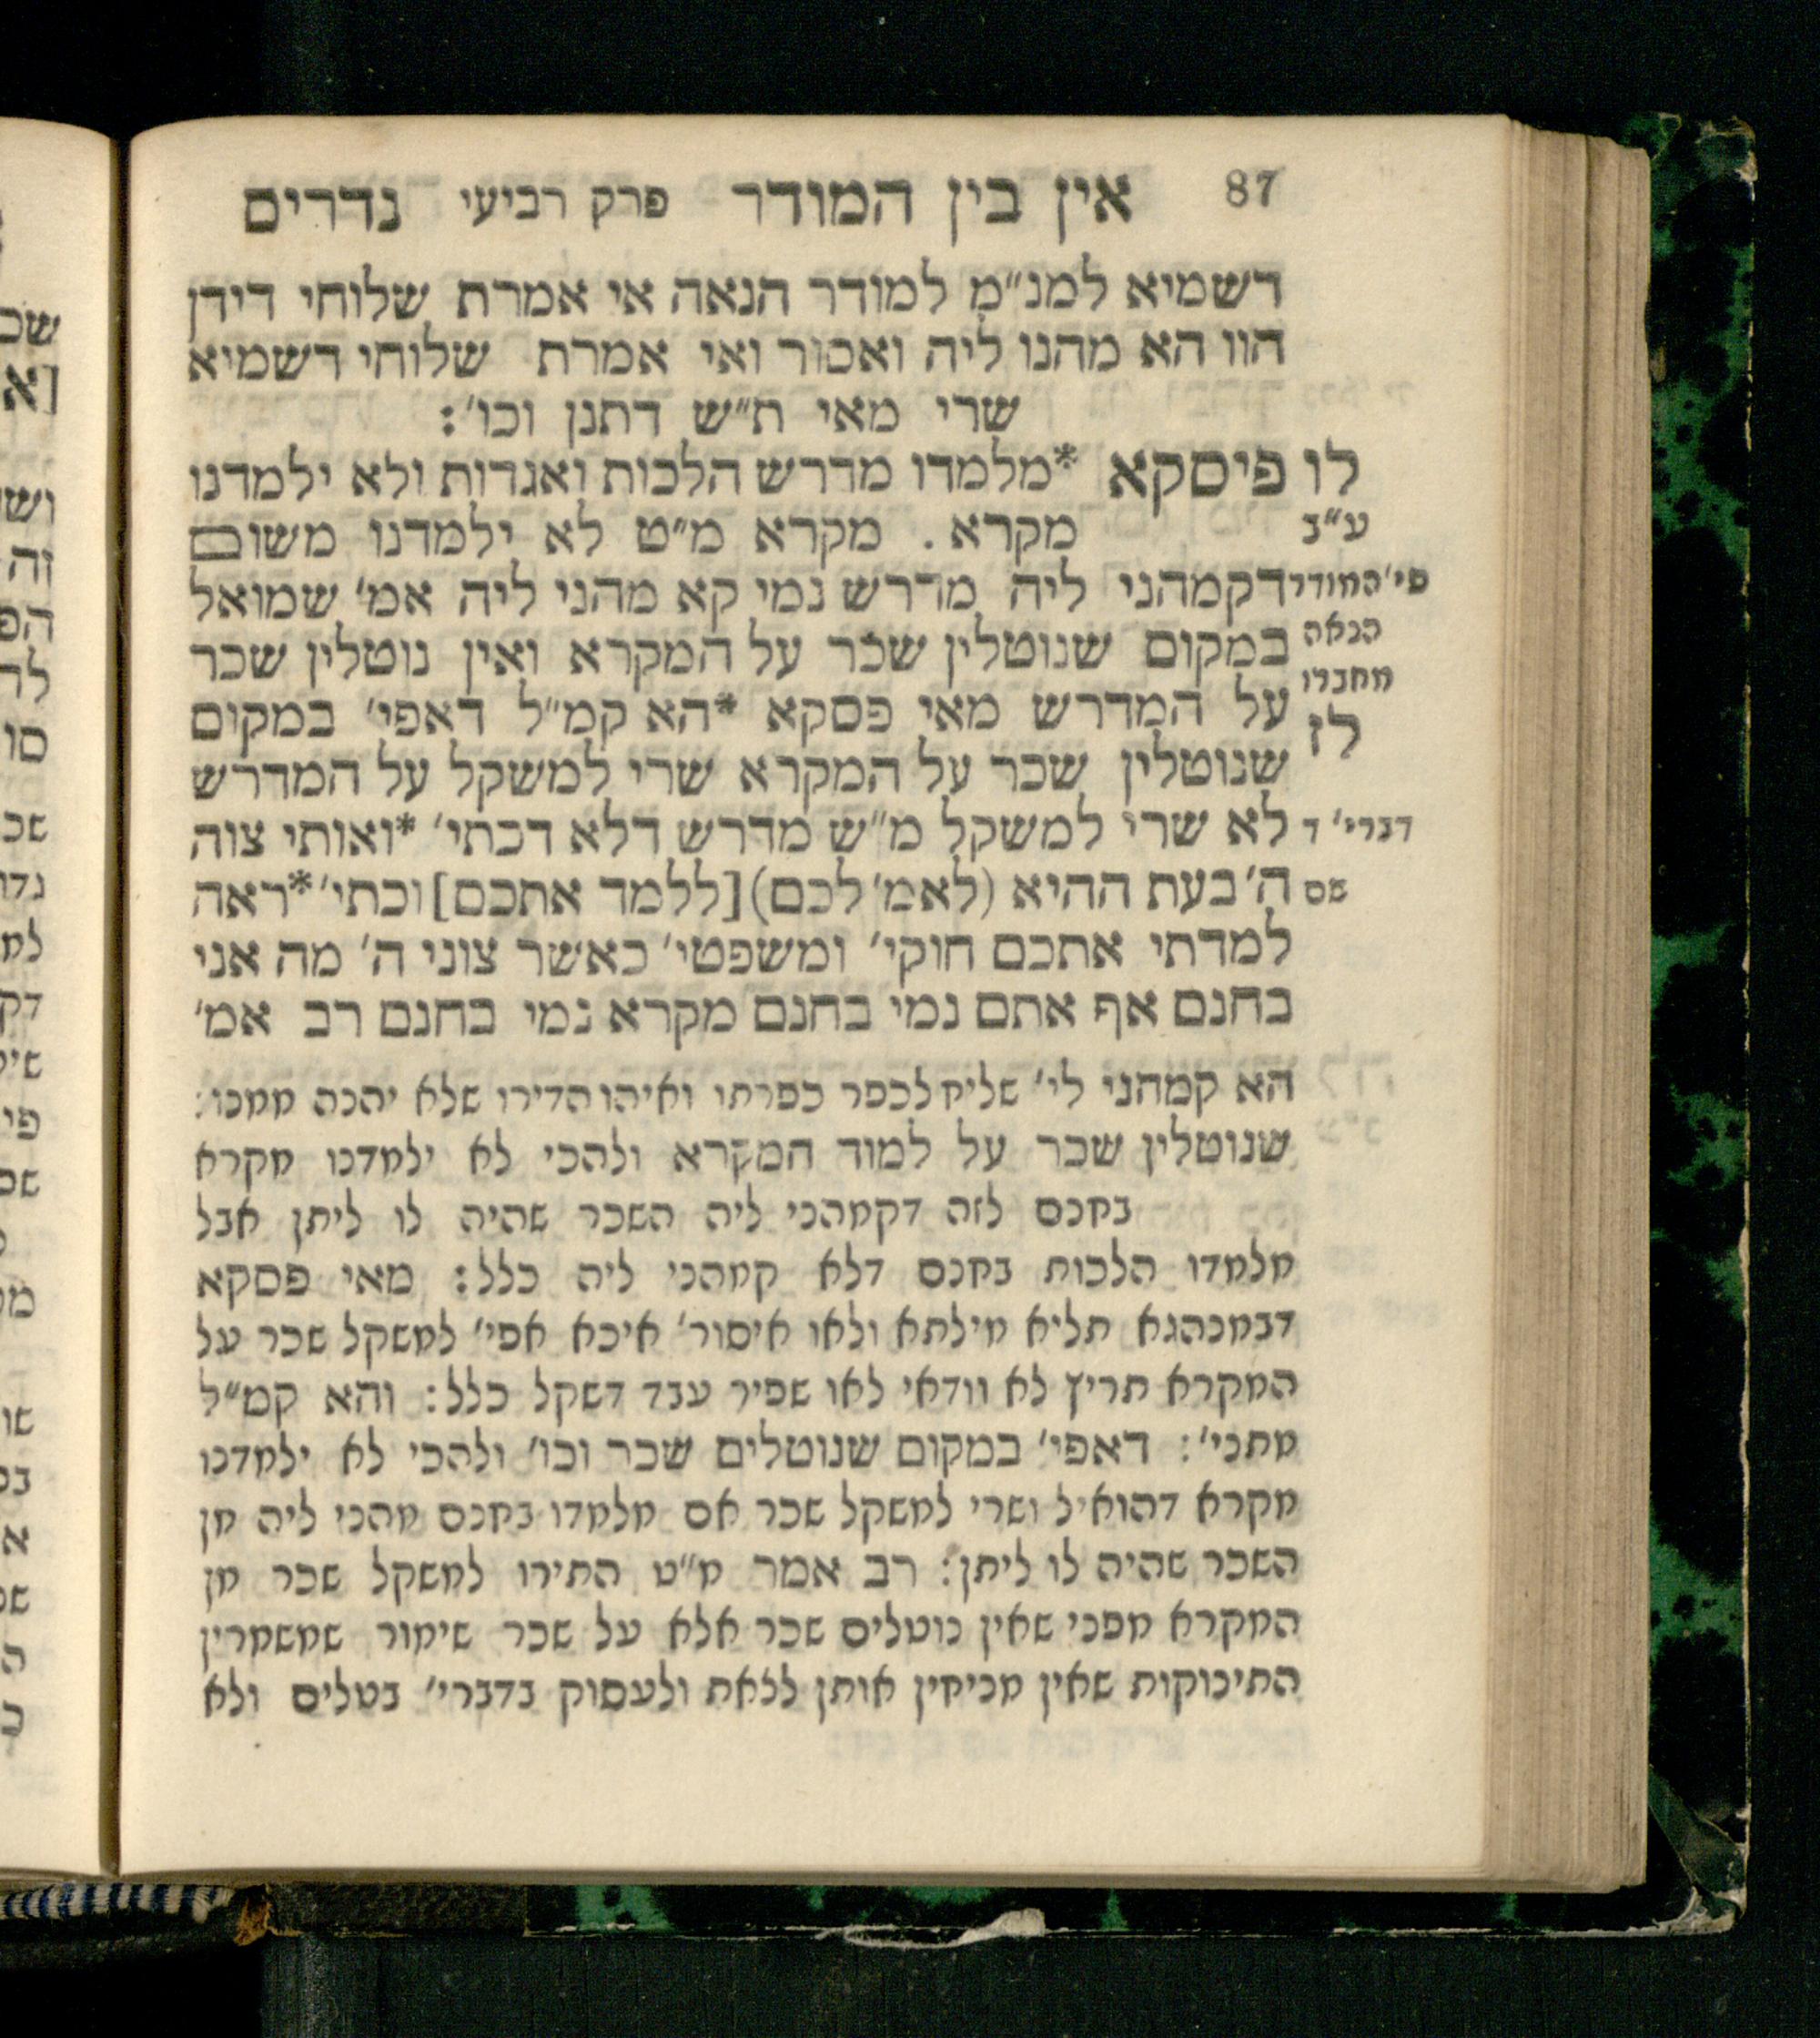 87 אין בין המודר פרק רביעי נדרים
דשמיא למנ״מ למודר הנאה אי אמרת שלוחי דידן
הוו הא מהנו ליה ואסור ואי אמרת שלוחי דשמיא
שרי מאי ת״ש דתנן וכו׳:
לו פיסקא *מלמדו מדרש הלכות ואגדות ולא ילמדנו
ע״ב מקרא. מקרא מ״ט לא ילמדנו משום
פי׳ המודר דקמהני ליה מדרש נמי קא מהני ליה אמ׳ שמואל
הנאה במקום שנוטלין שכר על המקרא ואין נוטלין שכר
מחברו
לז על המדרש מאי פסקא *הא קמ״ל דאפי׳ במקום
שנוטלין שכר על המקרא שרי למשקל על המדרש
דברי׳ ד לא שרי למשקל מ״ש מדרש דלא דכתי׳ *ואותי צוה
שם ה׳ בעת ההיא (לאמ׳ לכם) [ללמד אתכם] וכתי׳ *ראה
למדתי אתכם חוקי׳ ומשפטי׳ כאשר צוני ה׳ מה אני
בחנם אף אתם נמי בחנם מקרא נמי בחנם רב אמ׳
הא קמהני לי׳ שליח לכפר כפרתו ואיהו הדירו שלא יהנה ממנו:
שנוטלין שכר על למוד המקרא ולהכי לא ילמדנו מקרא
בחנם לזה דקמהני ליה השכר שהיה לו ליתן אבל
מלמדו הלכות בחנם דלא קמהני ליה כלל: מאי פסקא
דבמנהגא תליא מילתא ולאו איסור׳ איכא אפי׳ למשקל שכר על
המקרא תריץ לא וודאי לאו שפיר עבד דשקל כלל: והא קמ״ל
מתני׳: דאפי׳ במקום שנוטלים שכר וכו׳ ולהכי לא ילמדנו
מקרא דהואיל ושרי למשקל שכר אם מלמדו בחנם מהני ליה מן
השכר שהיה לו ליתן: רב אמר מ״ט התירו למשקל שכר מן
המקרא מפני שאין נוטלים שכר אלא על שכר שימור שמשמרין
התינוקות שאין מניחין אותן ללאת ולעסוק בדברי׳ בטלים ולא